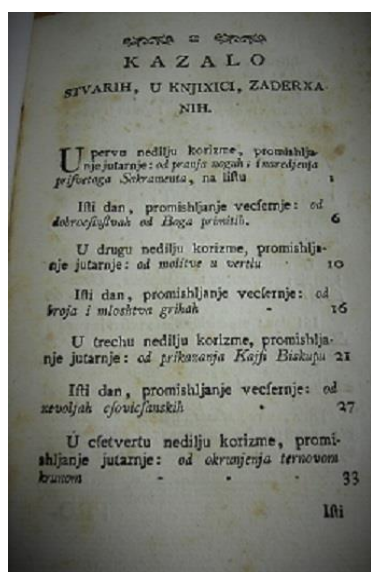 KAZALO
STVARIH, U KNJIXICI, ZADERXA-
NIH.
U pervu nedilju korizme, promishlja-
nje jutarnje: od pranja nogah i naredjenja
priſvetoga Sakramenta, na liſtu 1
Iſti dan, promishljanje vecſernje: od
dobrocſinſtvah od Boga primitih. 6
U drugu nedilju korizme, promishlja-
nje jutarnje: od molitve u vertlu 10
Iſti dan, promishljanje vecſernje: od
broja i mloshtva grihah - 16
U trechu nedilju korizme, promishlja-
nje jutarnje: od prikazanja Kajfi Biskupu 21
Iſti dan, promishljanje vecſernje: od
nevoljah cſovicſanskih - 27
U cſetvertu nedilju korizme, promi-
shljanje jutarnje: od okrunjenja ternovom
krunom - - - 33
Iſti